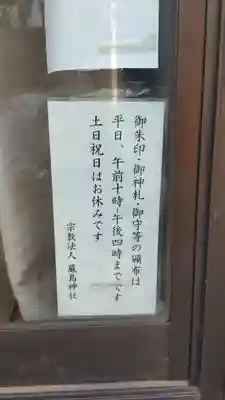 御朱印・御神札・御守等の頒布は
平日、午前十時~午後四時までです
土日祝日はお休みです
宗教法人 厳島神社